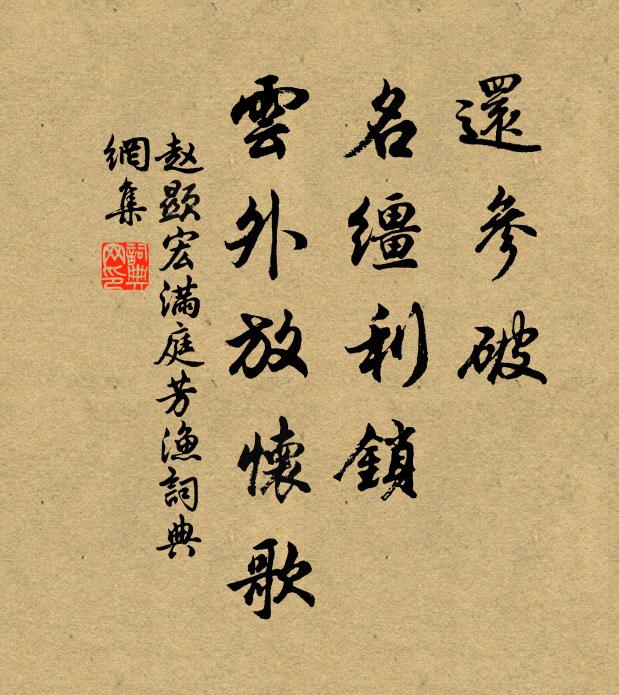 還參破
名缰利鎖
雲外放懷歌
赵顯宏滿庭芳渔詞典
網集
詞典
网印